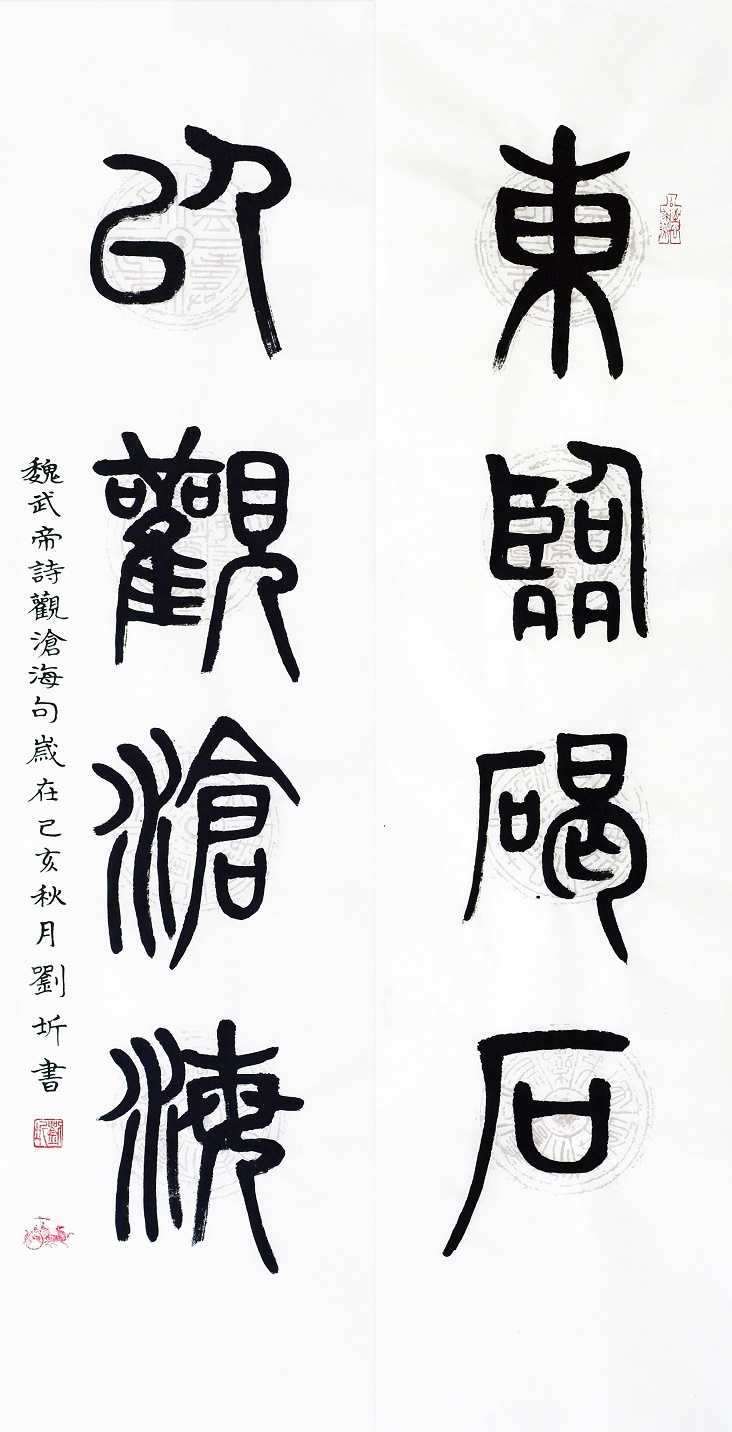 東臨碣石
以觀滄海
魏武帝詩觀滄海句歲在己亥秋月劉圻書
劉圻